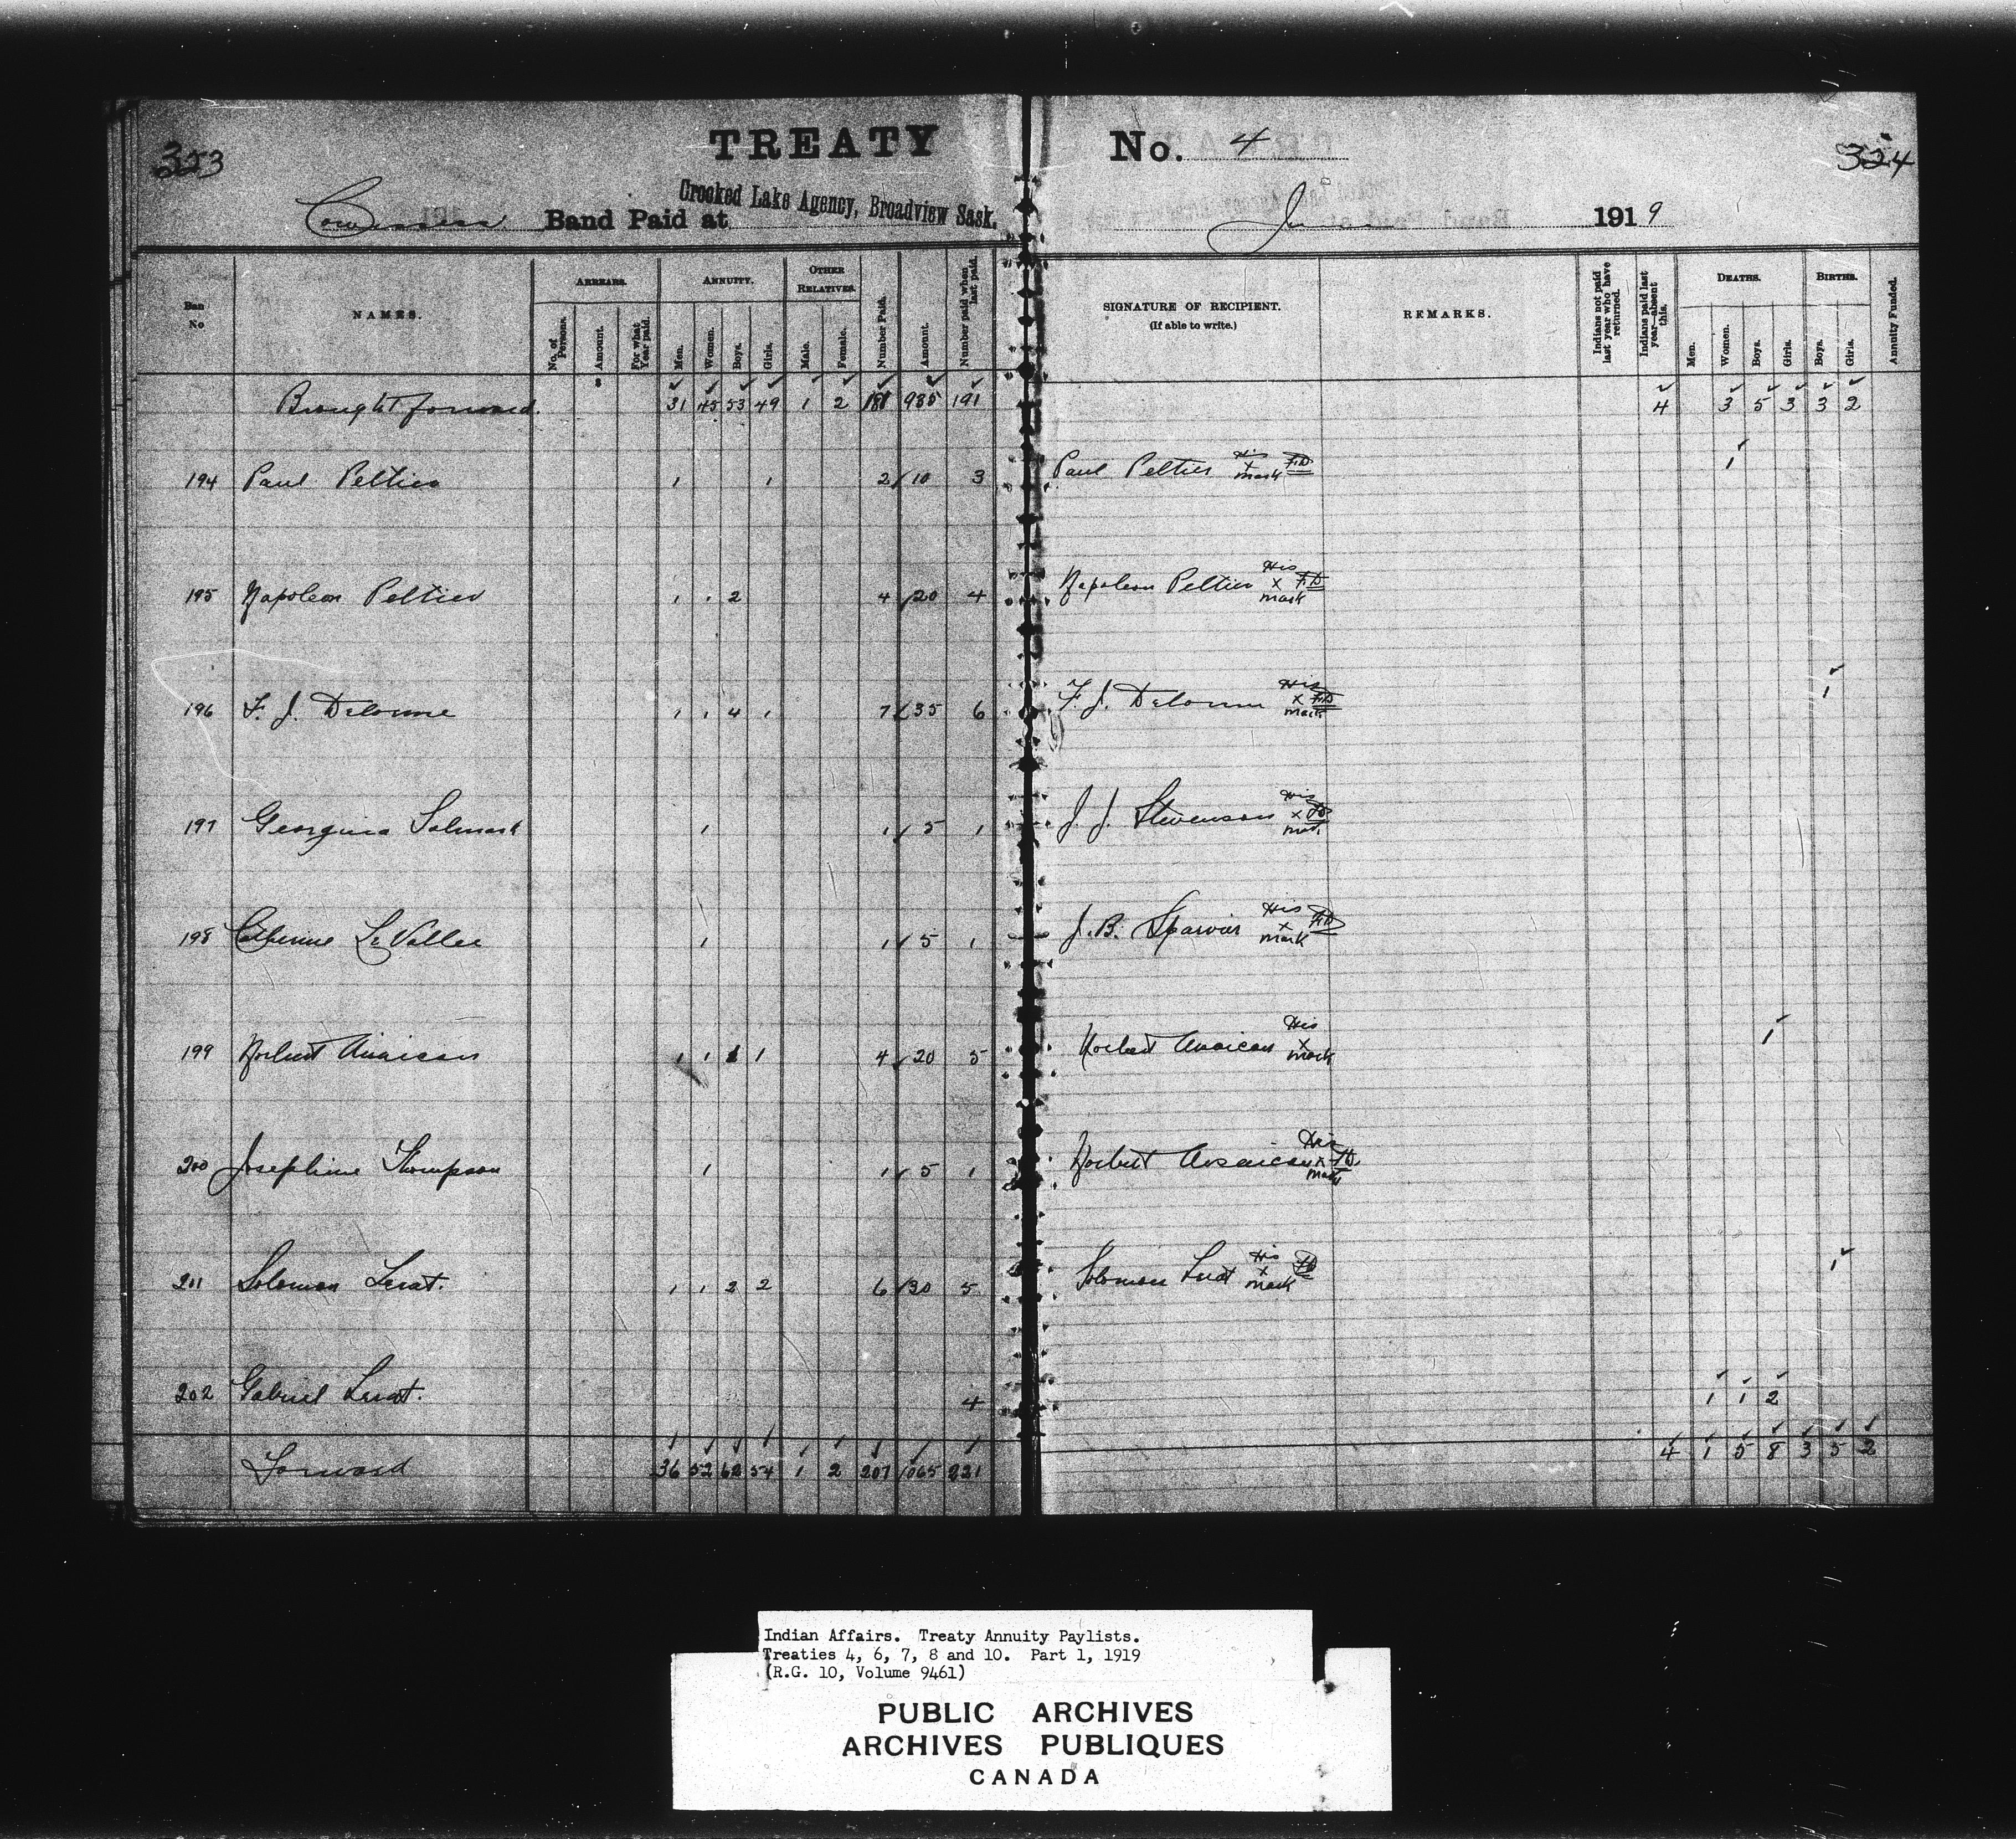 323 TREATY No. 4 324
Cowessess Band Paid at Crooked Lake Agency, Broadview Sask. June 1919
Ban No
NAMES.
ARREARS.
No. of Persons.
Amount.
For what Year paid.
ANNUITY.
Men.
Women.
Boys.
Girls.
OTHER RELATIVES.
Male.
Female.
Number Paid.
Amount.
Number paid when last paid.
SIGNATURE OF RECIPIENT.
(If able to write.)
REMARKS.
Indians not paid last year who have returned.
Indians paid last year—absent this.
DEATHS.
Men.
Women.
Boys.
Girls.
BIRTHS.
Boys.
Girls.
Annuity Funded.
Brought forward 31 45 53 49 1 2 181 935 191 4 3 5 3 3 2
194 Paul Peltier 1 1 2 10 3 Paul Peltier His x mark FD 1
195 Napoleon Peltier 1 1 2 4 20 4 Napoleon Peltier His x mark FD
196 F. J. Delorme 1 1 4 1 7 35 6 F. J. Delorme His x mark FD 1
197 Georgina 1 1 5 1 J. J. Stevenson His x mark FD
198 Catherine LeVallee 1 1 5 1 J. B. Sparvier His x mark FD
199 Norbert 1 1 1 1 4 20 5 Norbert His x mark 1
200 Josephine Thompson 1 1 5 1 Norbert His x mark FD
201 Solomon Lerat. 1 1 2 2 6 30 5 Solomon Lerat His x mark FD 1
202 Gabriel Lerat. 4 1 1 2
Forward 36 52 62 54 1 2 207 1065 221 4 1 5 8 3 5 2
Indian Affairs. Treaty Annuity Paylists.
Treaties 4, 6, 7, 8 and 10. Part 1, 1919
(R.G. 10, Volume 9461)
PUBLIC ARCHIVES
ARCHIVES PUBLIQUES
CANADA